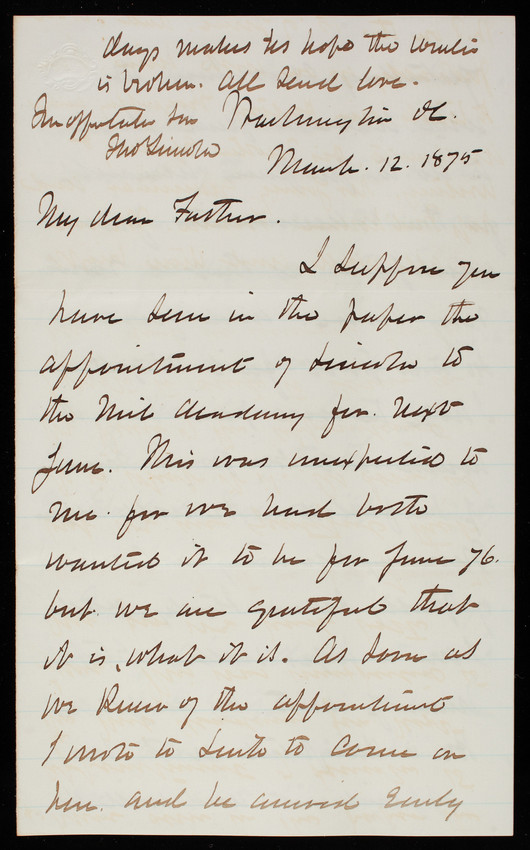 days makes us hope the winter
is broken. All send love.
Your affectionate son
Thos Lincoln
Washington DC.
March. 12. 1875
My dear Father.
I suppose you
have seen in the paper the
appointment of Lincoln to
the Mil Academy for next
June. This was unexpected to
me for we had both
wanted it to be for June 76.
but we are grateful that
it is, what it is. As soon as
we knew of the appointment
I wrote to to come on
here. and he arrived early